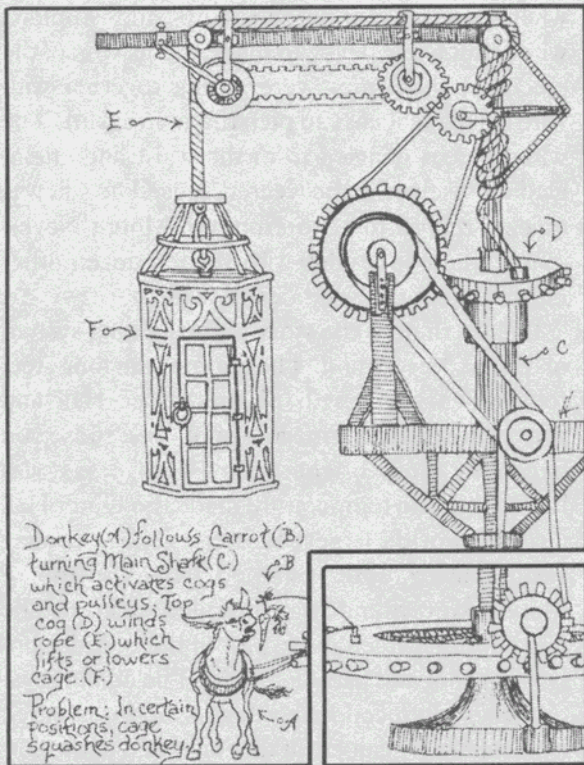 E
F
D
C
Donkey (A) follows Carrot (B)
turning Main Shaft (C)
which activates cogs
and pulleys. Top
cog (D) winds
rope (E) which
lifts or lowers
cage. (F)
Problem: In certain
positions, cage
squashes donkey.
B
A